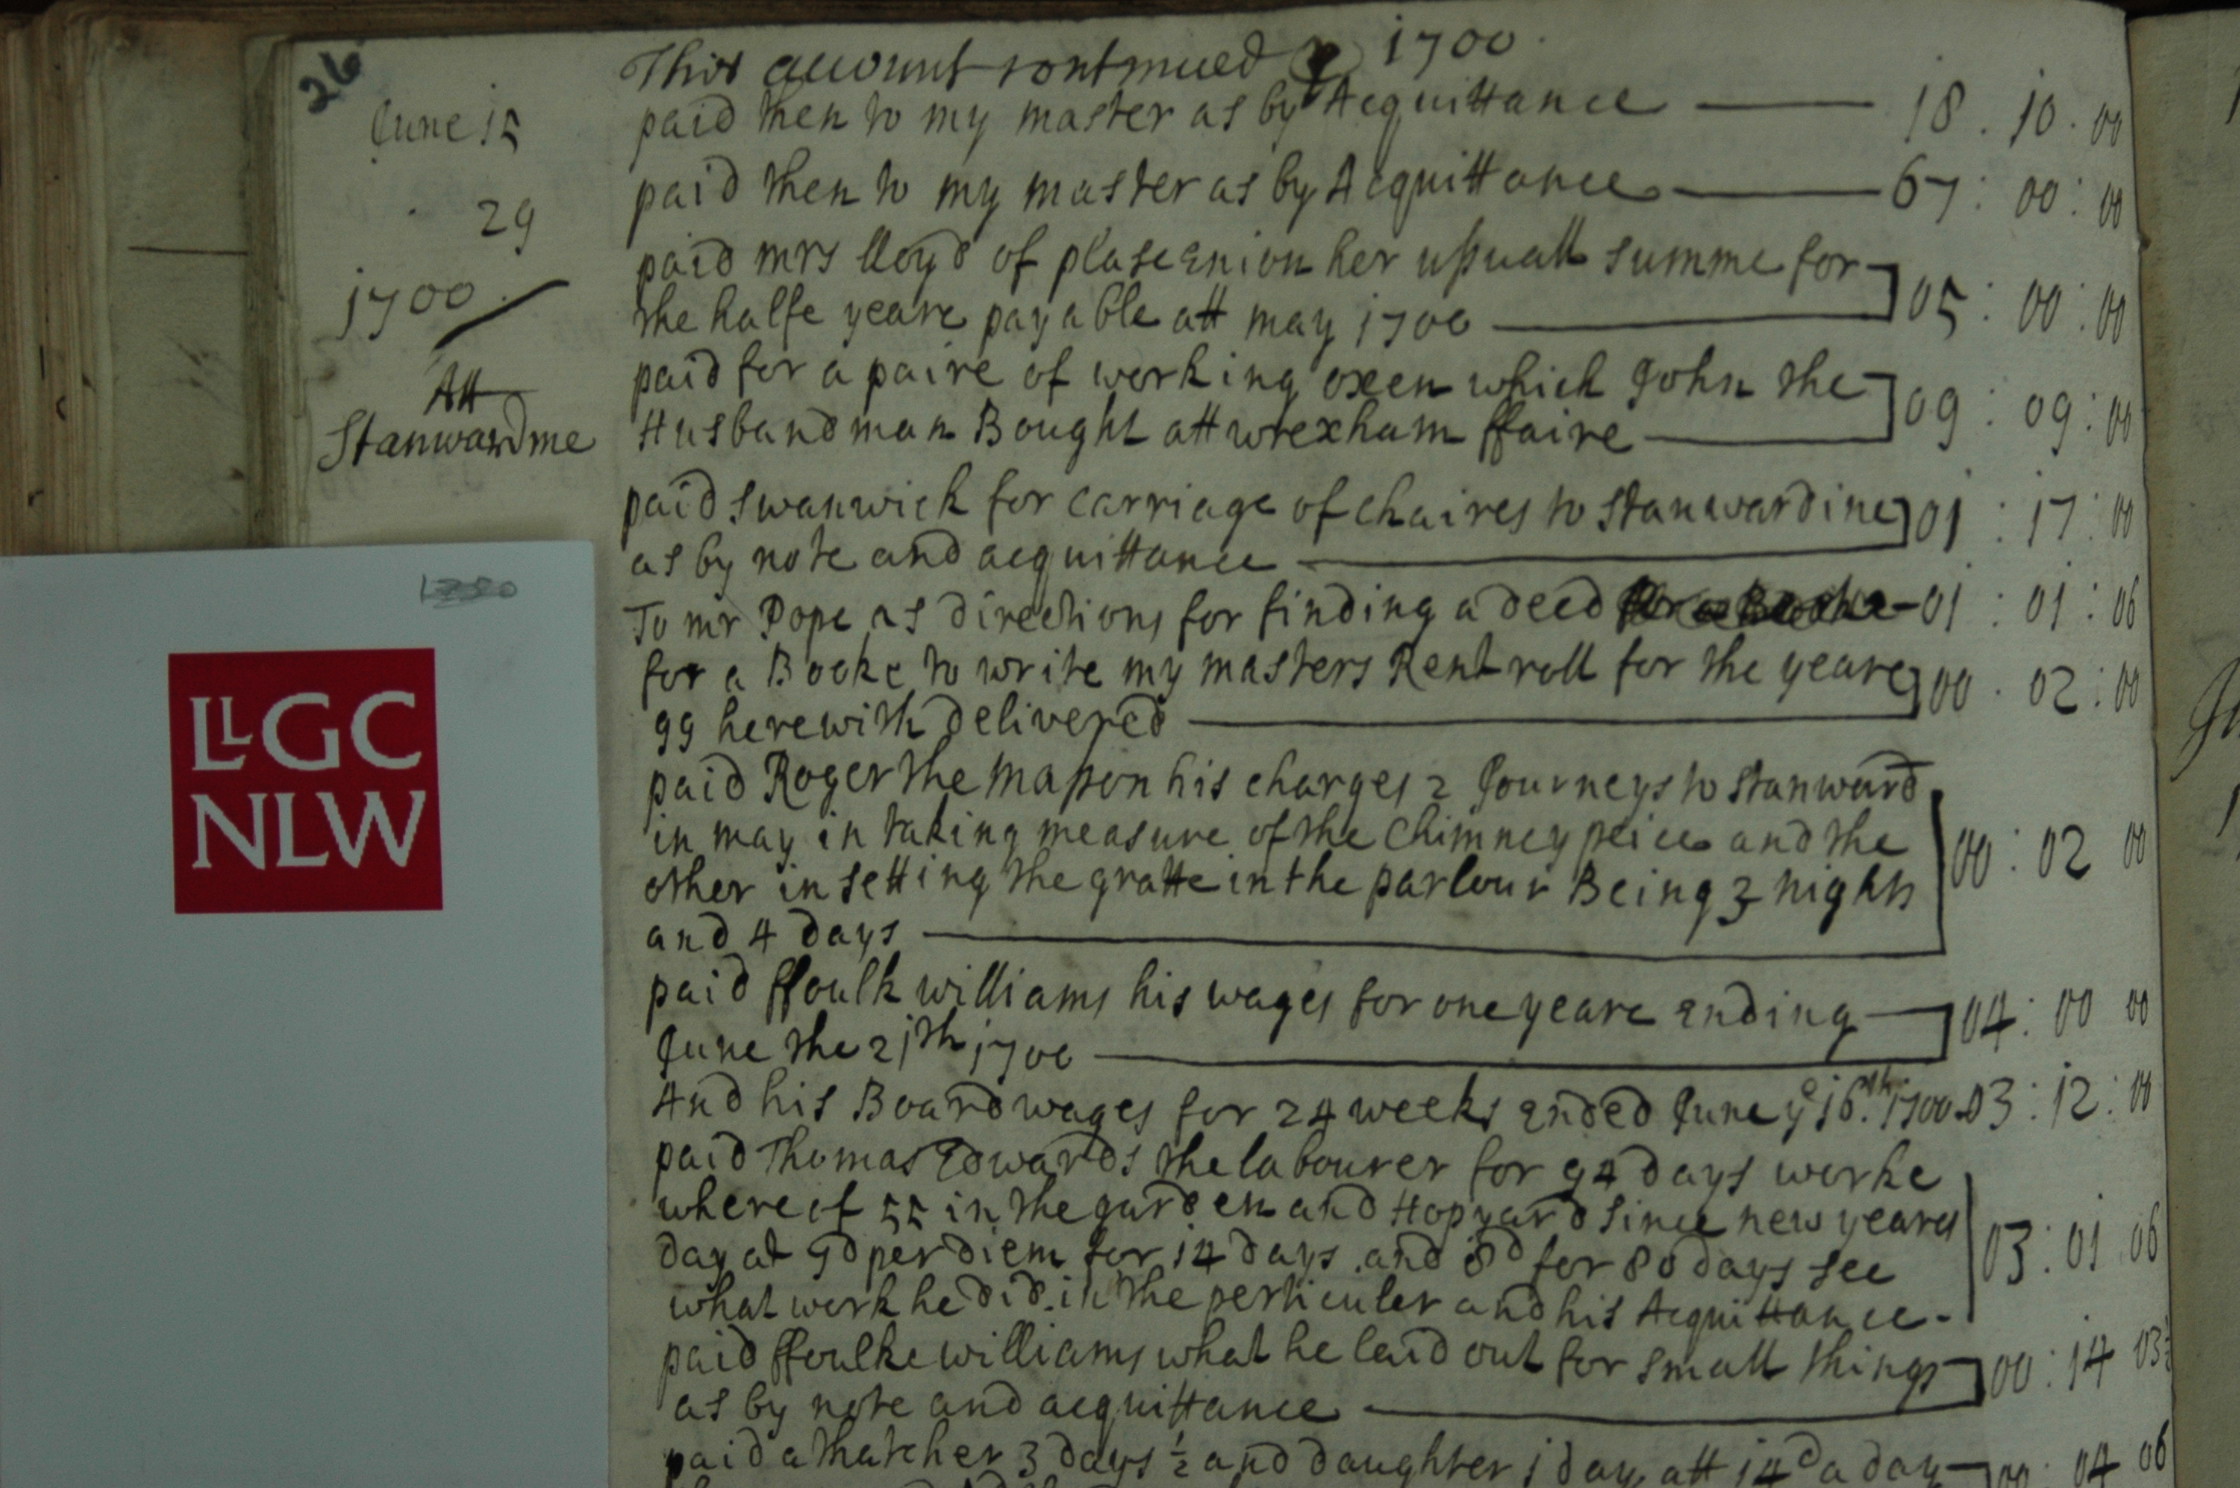 26
This account continued 1700
June 15
paid then to my master as by Acquittance 18 . 10 . 00
29
paid then to my master as by Acquittance 67 : 00 : 00
1700
paid mrs lloyd of plase enion her ussuall summe for
the halfe yeare payable att may 1700 05 : 00 : 00
Att
Stanwardine
paid for a paire of working oxen which John the
Husbandman Bought att wrexham ffaire 09 : 09 : 00
paid swanwick for carriage of chaires to stanwardine
as by note and acquittance 01 : 17 : 00
To mr Pope as directions for finding a deed 01 : 01 : 06
for a Booke to write my masters Rent roll for the yeare
99 herewith delivered 00 . 02 : 00
paid Roger the masson his charges 2 Journeys to stanward
in may in taking measure of the Chimney peice and the
other in setting the gratte in the parlour Being 3 nights
and 4 days 00 : 02 00
paid ffoulk williams his wages for one yeare Ending
June the 21th 1700 04 : 00 00
And his Board wages for 24 weeks Ended June ye 16th 1700 03 : 12 : 00
paid Thomas Edwards the labourer for 94 days worke
where of 55 in the garden and Hopyard since new years
day at 9d per diem for 14 days and 8d for 80 days see
what work he did in the perticuler and his Acquittance 03 : 01 06
paid ffoulke williams what he laid out for small things
as by note and acquittance 00 : 14 03 ½
paid a thatcher 3 days ½ and daughter 1 day att 14d a day 00 : 04 06
LLGC
NLW